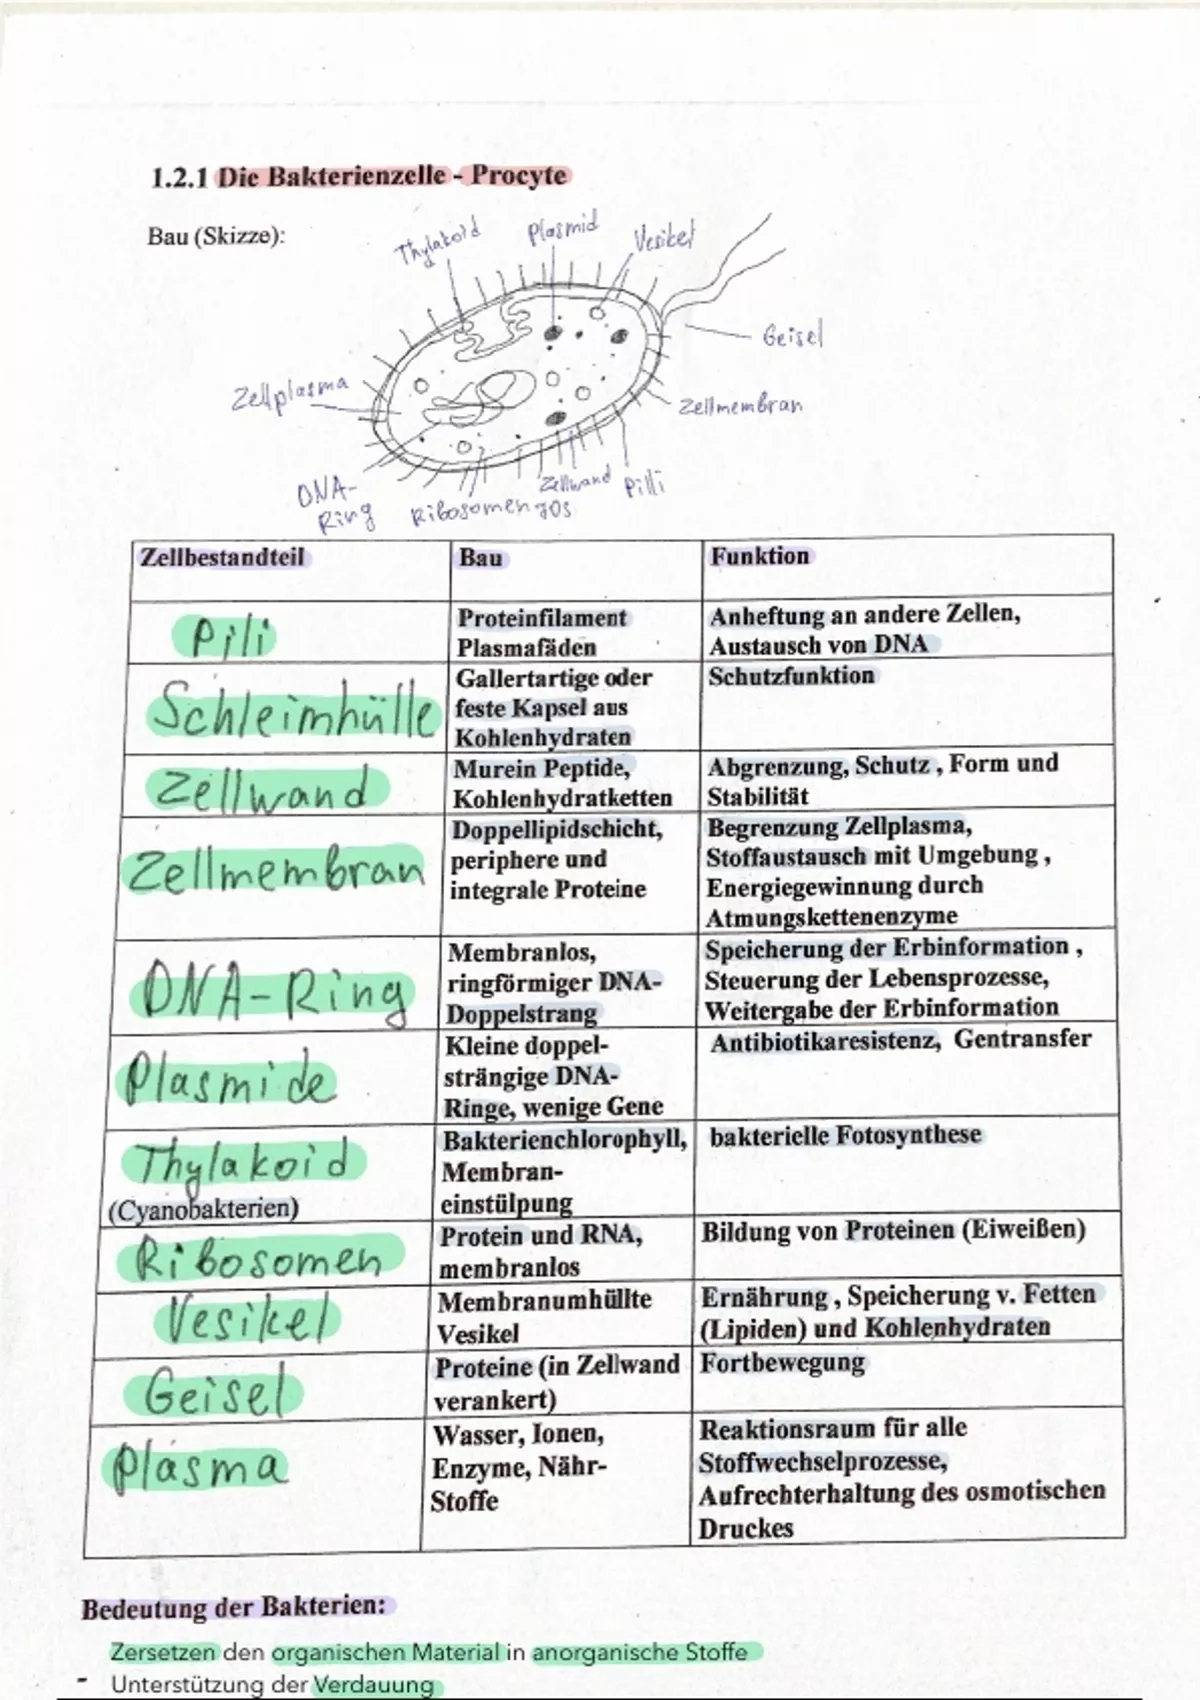 1.2.1 Die Bakterienzelle - Procyte
Bau (Skizze):
Thylakoid
Plasmid
Vesikel
Geisel
Zellplasma
Zellmembran
DNA-
Ring
Ribosomen 70S
Zellwand
Pilli
Zellbestandteil Bau Funktion
Pili
Proteinfilament
Plasmafäden
Anheftung an andere Zellen,
Austausch von DNA
Schleimhülle
Gallertartige oder
feste Kapsel aus
Kohlenhydraten
Schutzfunktion
Zellwand
Murein Peptide,
Kohlenhydratketten
Abgrenzung, Schutz , Form und
Stabilität
Zellmembran
Doppellipidschicht,
periphere und
integrale Proteine
Begrenzung Zellplasma,
Stoffaustausch mit Umgebung ,
Energiegewinnung durch
Atmungskettenenzyme
DNA-Ring
Membranlos,
ringförmiger DNA-
Doppelstrang
Speicherung der Erbinformation ,
Steuerung der Lebensprozesse,
Weitergabe der Erbinformation
Plasmide
Kleine doppel-
strängige DNA-
Ringe, wenige Gene
Antibiotikaresistenz, Gentransfer
Thylakoid
(Cyanobakterien)
Bakterienchlorophyll,
Membran-
einstülpung
bakterielle Fotosynthese
Ribosomen
Protein und RNA,
membranlos
Bildung von Proteinen (Eiweißen)
Vesikel
Membranumhüllte
Vesikel
Ernährung , Speicherung v. Fetten
(Lipiden) und Kohlenhydraten
Geisel
Proteine (in Zellwand
verankert)
Fortbewegung
Plasma
Wasser, Ionen,
Enzyme, Nähr-
Stoffe
Reaktionsraum für alle
Stoffwechselprozesse,
Aufrechterhaltung des osmotischen
Druckes
Bedeutung der Bakterien:
Zersetzen den organischen Material in anorganische Stoffe
- Unterstützung der Verdauung